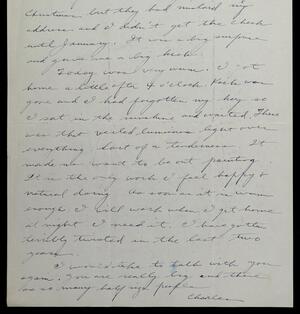 Christmas but they had mislaid my
address and I didn't get the check
until January. It was a big surprise
and gave me a big kick.
Today was very warm. I got
home a little after 4 o'clock. was
gone and I had forgotten my key so
I sat in the sunshine and waited. There
was that veiled luminous light over
everything. Sort of a tenderness. It
made me want to be out painting.
It is the only work I feel happy &
natural doing. As soon as it is warm
enough I will work when I get home
at night. I need it. I have gotten
terribly twisted in the last two
years.
I would like to talk with you
again. You are really big and there
are so many half people
Charles